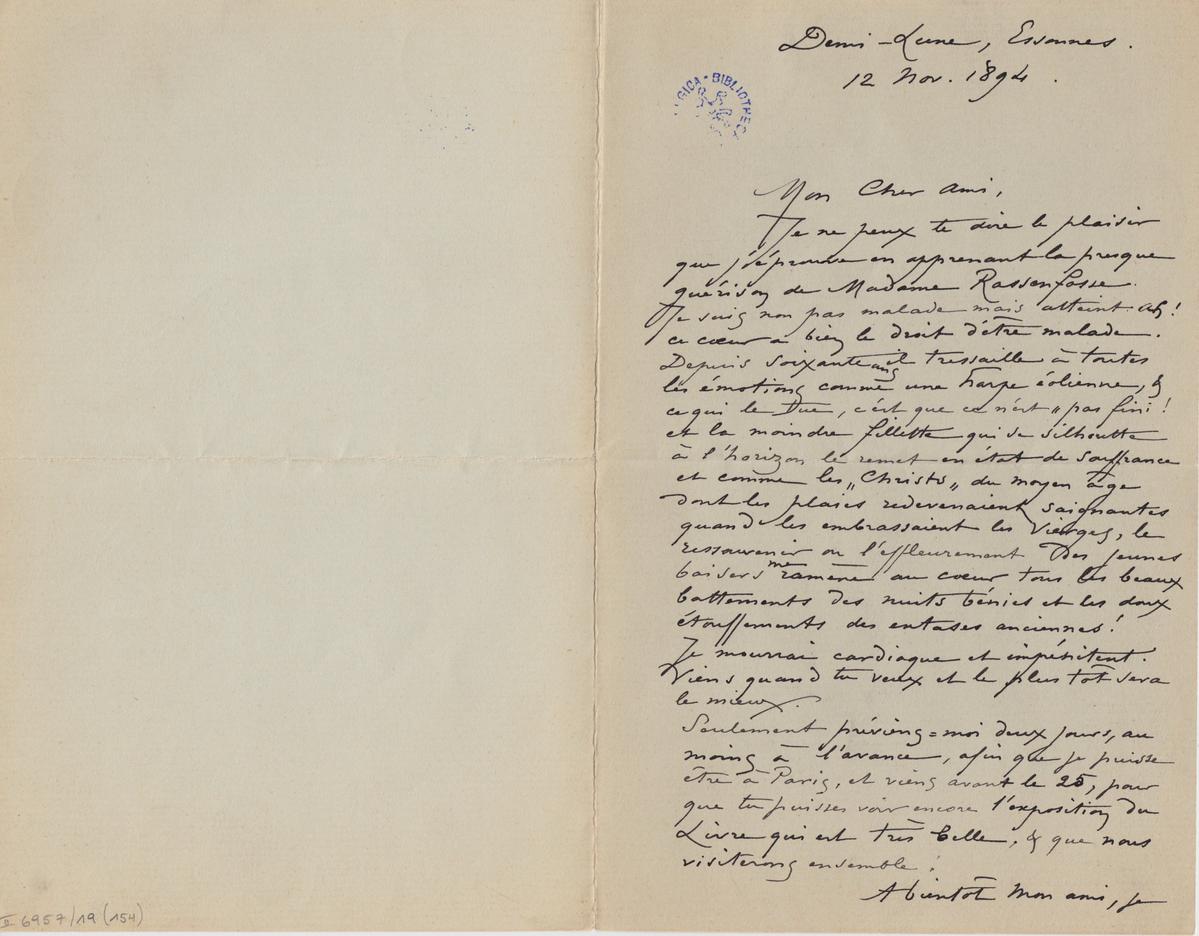 Demi-Lune, Essonnes.
12 Nov. 1894.
GICA - BIBLIOTHECA
Mon Cher ami,
Je ne peux te dire le plaisir
que j'éprouve en apprenant la presque
guérison de Madame Rassenfosse.
Je suis non pas malade mais atteint. ah!
ce cœur a bien le droit d'être malade.
Depuis soixante ans il tressaille à toutes
les émotions comme une harpe éolienne, &
ce qui le tue, c'est que ce n'est „pas fini!
et la moindre fillette qui se silhoutte
à l'horizon le remet en état de souffrance
et comme les „Christs„ du moyen âge
dont les plaies redevenaient saignantes
quand les embrassaient les Vierges, le
ressouvenir ou l'effleurement Des jeunes
baisers me ramène au cœur tous les beaux
battements des nuits bénies et les doux
étouffements des extases anciennes!
Je mourrai cardiaque et impénitent.
Viens quand tu veux et le plus tôt sera
le mieux.
Seulement préviens=moi deux jours, au
moins à l'avance, afin que je puisse
être à Paris, et viens avant le 25, pour
que tu puisses voir encore l'exposition du
Livre qui est très belle, & que nous
visiterons ensemble!
A bientôt Mon ami, je
II 6957/19 (154)